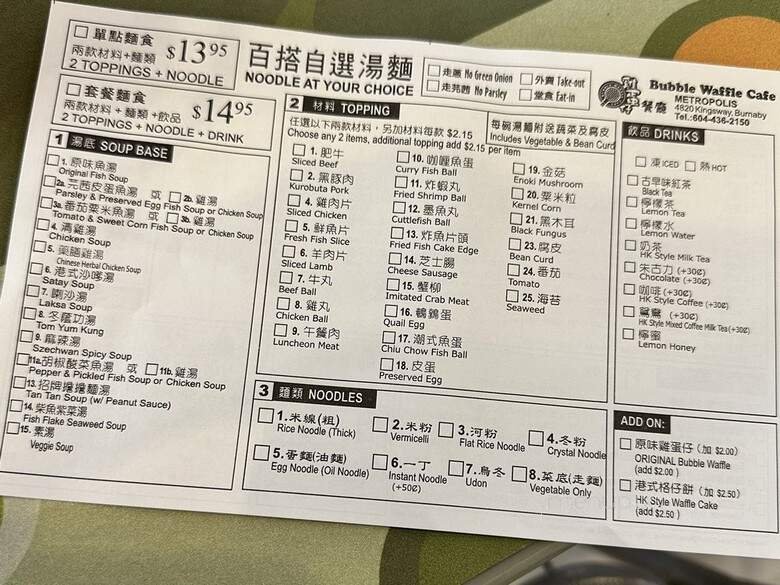 單點麵食
兩款材料+麵類 $13.95
2 TOPPINGS + NOODLE
套餐麵食
兩款材料 + 麵類 +飲品 $14.95
2 TOPPINGS + NOODLE + DRINK
百搭自選湯麵
NOODLE AT YOUR CHOICE
走蔥 No Green Onion
外賣 Take-out
走芫茜 No Parsley
堂食 Eat-in
餐廳
Bubble Waffle Cafe
METROPOLIS
4820 Kingsway, Burnaby
Tel.:604-436-2150
1 湯底 SOUP BASE
1. 原味魚湯
Original Fish Soup
2a. 芫茜皮蛋魚湯 或 2b. 雞湯
Parsley & Preserved Egg Fish Soup or Chicken Soup
3a. 番茄粟米魚湯 或 3b. 雞湯
Tomato & Sweet Corn Fish Soup or Chicken Soup
4. 清雞湯
Chicken Soup
5. 藥膳雞湯
Chinese Herbal Chicken Soup
6. 港式沙嗲湯
Satay Soup
7. 喇沙湯
Laksa Soup
8. 冬蔭功湯
Tom Yum Kung
9. 麻辣湯
Szechwan Spicy Soup
11a. 胡椒酸菜魚湯 或 11b. 雞湯
Pepper & Pickled Fish Soup or Chicken Soup
13. 招牌擔擔麵湯
Tan Tan Soup (w/ Peanut Sauce)
14. 柴魚紫菜湯
Fish Flake Seaweed Soup
15. 素湯
Veggie Soup
2 材料 TOPPING
任選以下兩款材料，另加材料每款 $2.15
Choose any 2 items, additional topping add $2.15 per item
每碗湯麵附送蔬菜及腐皮
Includes Vegetable & Bean Curd
1. 肥牛
Sliced Beef
2. 黑豚肉
Kurobuta Pork
3. 雞肉片
Sliced Chicken
5. 鮮魚片
Fresh Fish Slice
6. 羊肉片
Sliced Lamb
7. 牛丸
Beef Ball
8. 雞丸
Chicken Ball
9. 午餐肉
Luncheon Meat
10. 咖喱魚蛋
Curry Fish Ball
11. 炸蝦丸
Fried Shrimp Ball
12. 墨魚丸
Cuttlefish Ball
13. 炸魚片頭
Fried Fish Cake Edge
14. 芝士腸
Cheese Sausage
15. 蟹柳
Imitated Crab Meat
16. 鵪鶉蛋
Quail Egg
17. 潮式魚蛋
Chiu Chow Fish Ball
18. 皮蛋
Preserved Egg
19. 金菇
Enoki Mushroom
20. 粟米粒
Kernel Corn
21. 黑木耳
Black Fungus
23. 腐皮
Bean Curd
24. 番茄
Tomato
25. 海苔
Seaweed
3 麵類 NOODLES
1.米線(粗)
Rice Noodle (Thick)
2.米粉
Vermicelli
3.河粉
Flat Rice Noodle
4.冬粉
Crystal Noodle
5.蛋麵(油麵)
Egg Noodle (Oil Noodle)
6.一丁
Instant Noodle
(+50¢)
7.烏冬
Udon
8.菜底(走麵)
Vegetable Only
飲品 DRINKS
凍 ICED
熱 HOT
古早味紅茶
Black Tea
檸檬茶
Lemon Tea
檸檬水
Lemon Water
奶茶
HK Style Milk Tea
朱古力 (+30¢)
Chocolate (+30¢)
咖啡 (+30¢)
HK Style Coffee (+30¢)
鴛鴦 (+30¢)
HK Style Mixed Coffee Milk Tea (+30¢)
檸蜜
Lemon Honey
ADD ON:
原味雞蛋仔 (加 $2.00)
ORIGINAL Bubble Waffle
(add $2.00 )
港式格仔餅 (加 $2.50)
HK Style Waffle Cake
(add $2.50 )